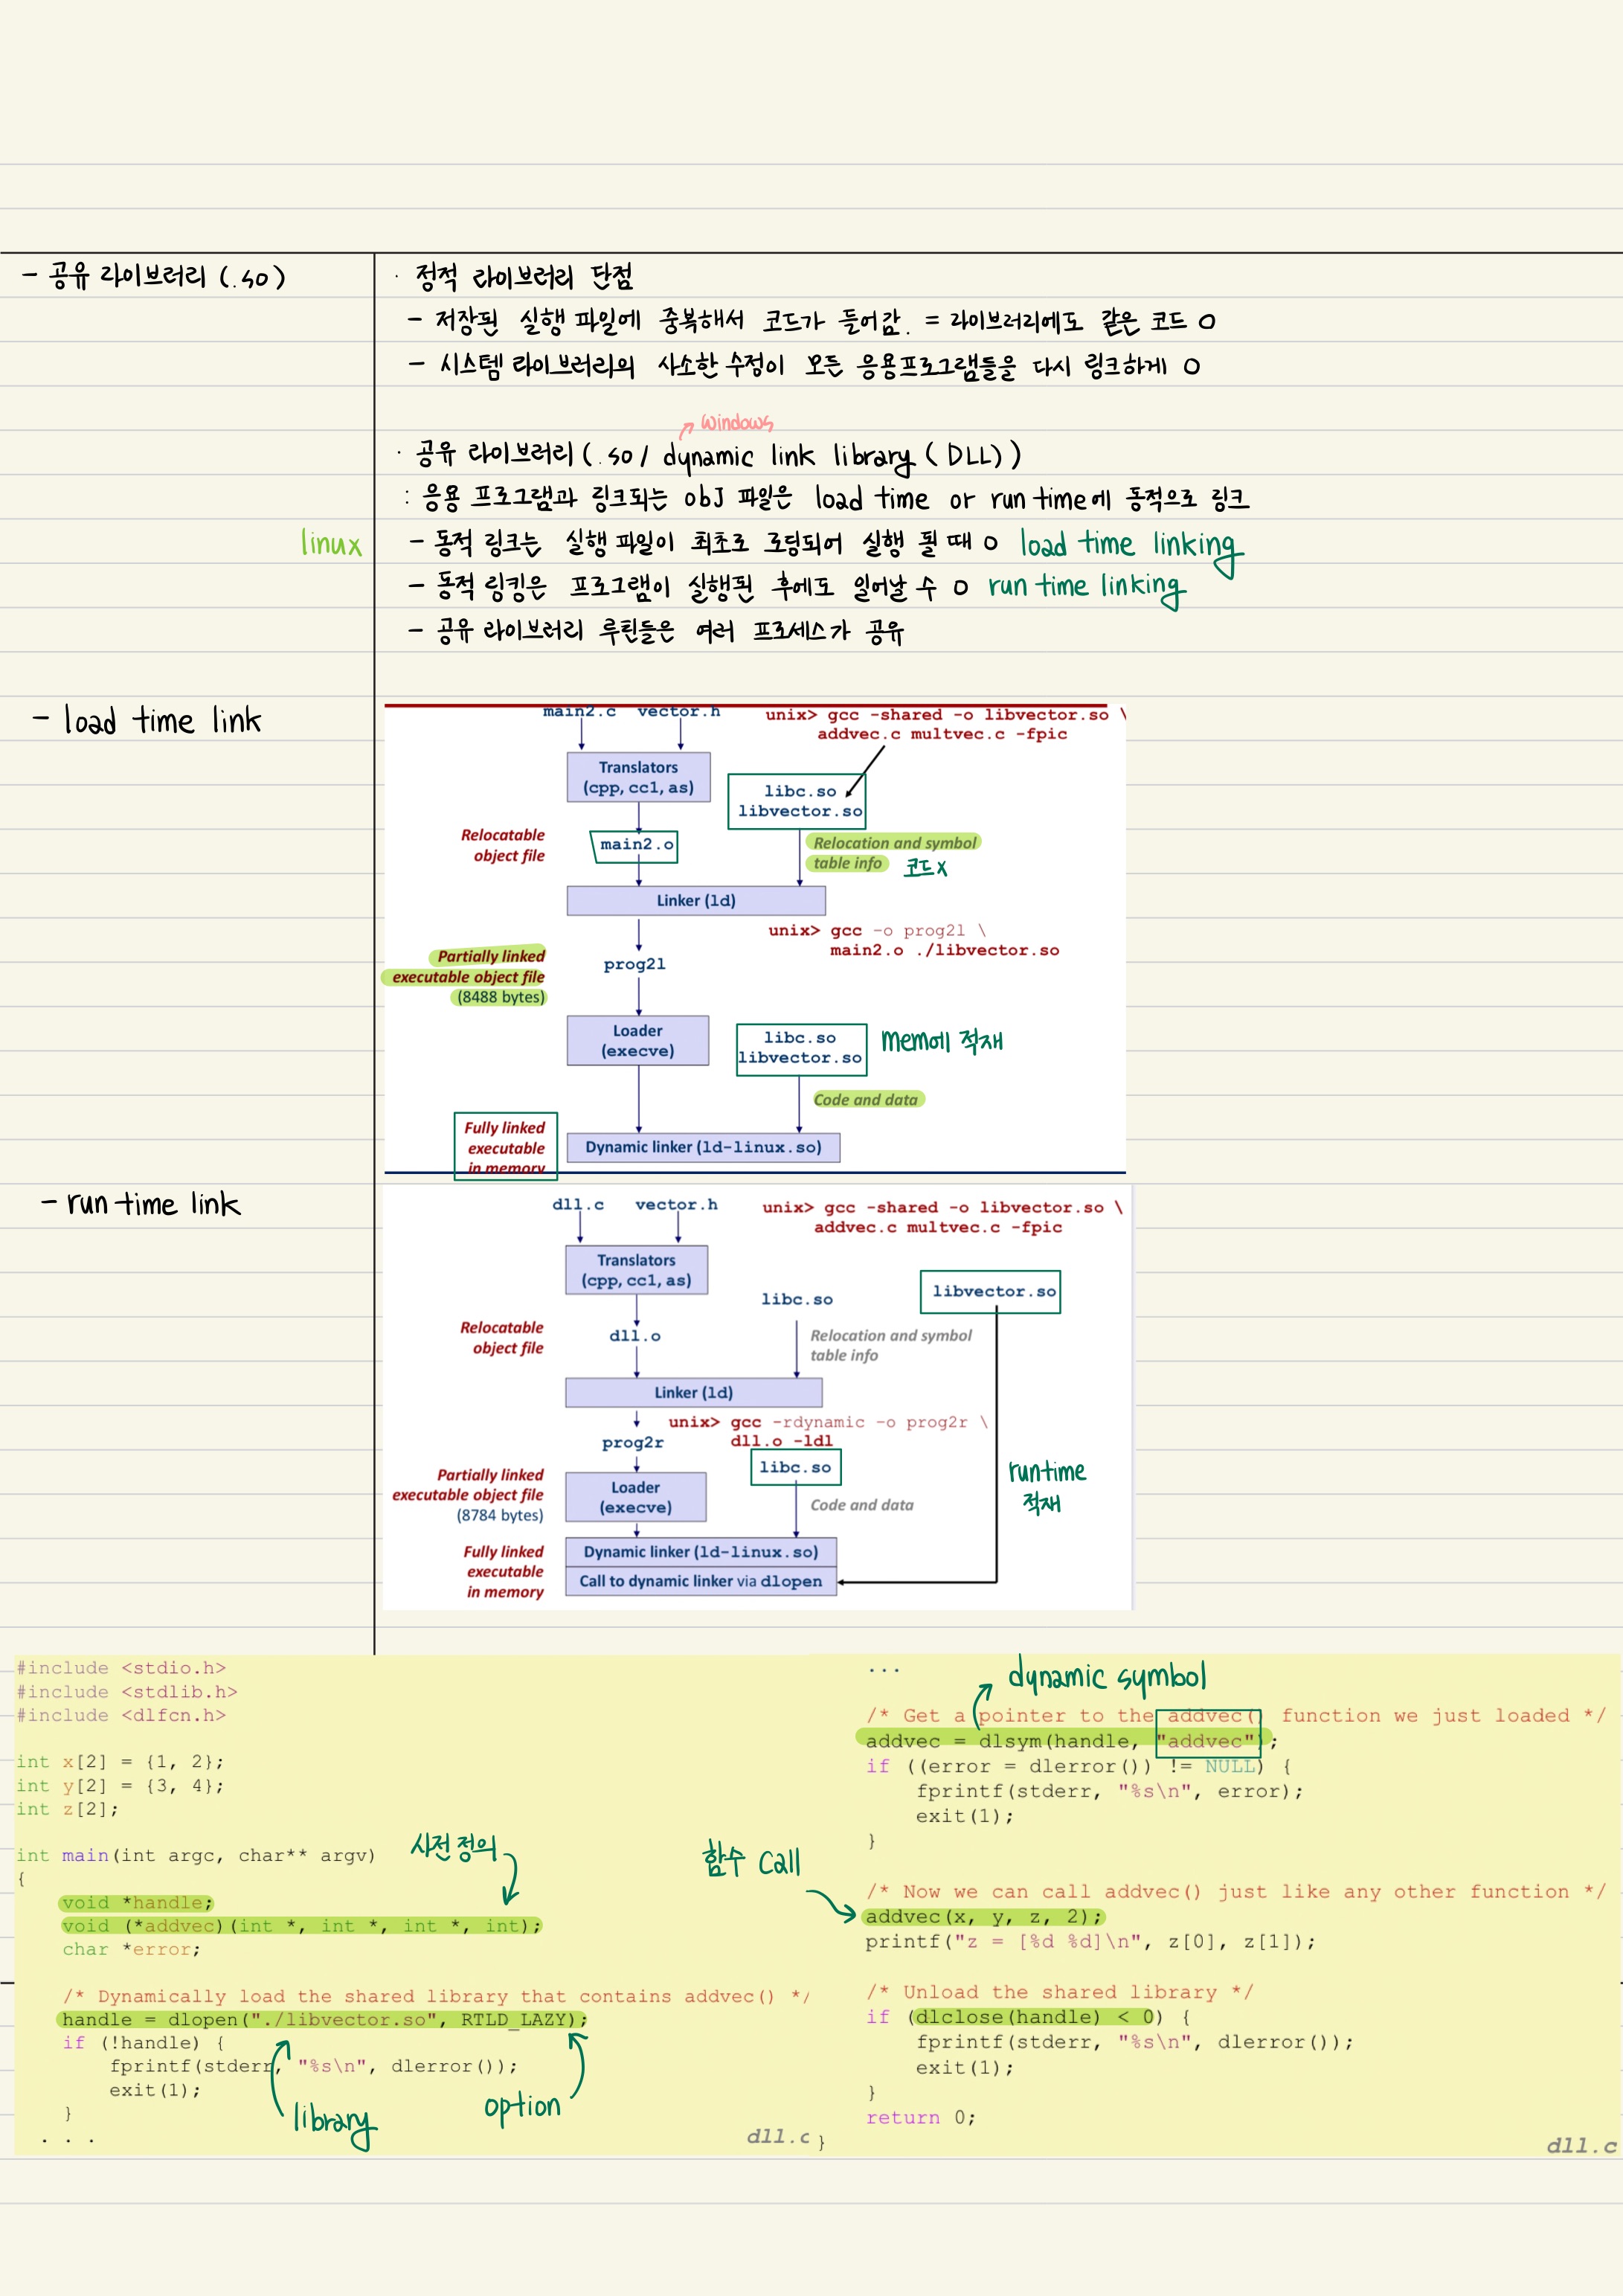 - 공유 라이브러리 (.so)
· 정적 라이브러리 단점
- 저장된 실행 파일에 중복해서 코드가 들어감. = 라이브러리에도 같은 코드 O
- 시스템 라이브러리의 사소한 수정이 모든 응용프로그램들을 다시 링크하게 O
windows
· 공유 라이브러리 (.so / dynamic link library (DLL))
: 응용 프로그램과 링크되는 obj 파일은 load time or run time에 동적으로 링크
linux
- 동적 링크는 실행 파일이 최초로 로딩되어 실행 될 때 O load time linking
- 동적 링킹은 프로그램이 실행된 후에도 일어날 수 O run time linking
- 공유 라이브러리 루틴들은 여러 프로세스가 공유
- load time link
main2.c vector.h
unix> gcc -shared -o libvector.so \
addvec.c multvec.c -fpic
Translators
(cpp, cc1, as)
libc.so
libvector.so
Relocatable
object file
main2.o
Relocation and symbol
table info 코드x
Linker (ld)
unix> gcc -o prog2l \
main2.o ./libvector.so
Partially linked
executable object file
(8488 bytes)
prog2l
Loader
(execve)
libc.so
libvector.so
mem에 적재
Code and data
Fully linked
executable
in memory
Dynamic linker (ld-linux.so)
- run time link
dll.c vector.h
unix> gcc -shared -o libvector.so \
addvec.c multvec.c -fpic
Translators
(cpp, cc1, as)
libc.so
libvector.so
Relocatable
object file
dll.o
Relocation and symbol
table info
Linker (ld)
unix> gcc -rdynamic -o prog2r \
dll.o -ldl
prog2r
libc.so
Partially linked
executable object file
(8784 bytes)
Loader
(execve)
Code and data
runtime
적재
Fully linked
executable
in memory
Dynamic linker (ld-linux.so)
Call to dynamic linker via dlopen
#include <stdio.h>
#include <stdlib.h>
#include <dlfcn.h>
int x[2] = {1, 2};
int y[2] = {3, 4};
int z[2];
int main(int argc, char** argv)
사전 정의
{
void *handle;
void (*addvec)(int *, int *, int *, int);
char *error;
/* Dynamically load the shared library that contains addvec() */
handle = dlopen("./libvector.so", RTLD_LAZY);
if (!handle) {
fprintf(stderr, "%s\n", dlerror());
exit(1);
}
library
option
. . .
dll.c
...
dynamic symbol
/* Get a pointer to the addvec() function we just loaded */
addvec = dlsym(handle, "addvec");
if ((error = dlerror()) != NULL) {
fprintf(stderr, "%s\n", error);
exit(1);
}
함수 call
/* Now we can call addvec() just like any other function */
addvec(x, y, z, 2);
printf("z = [%d %d]\n", z[0], z[1]);
/* Unload the shared library */
if (dlclose(handle) < 0) {
fprintf(stderr, "%s\n", dlerror());
exit(1);
}
return 0;
}
dll.c